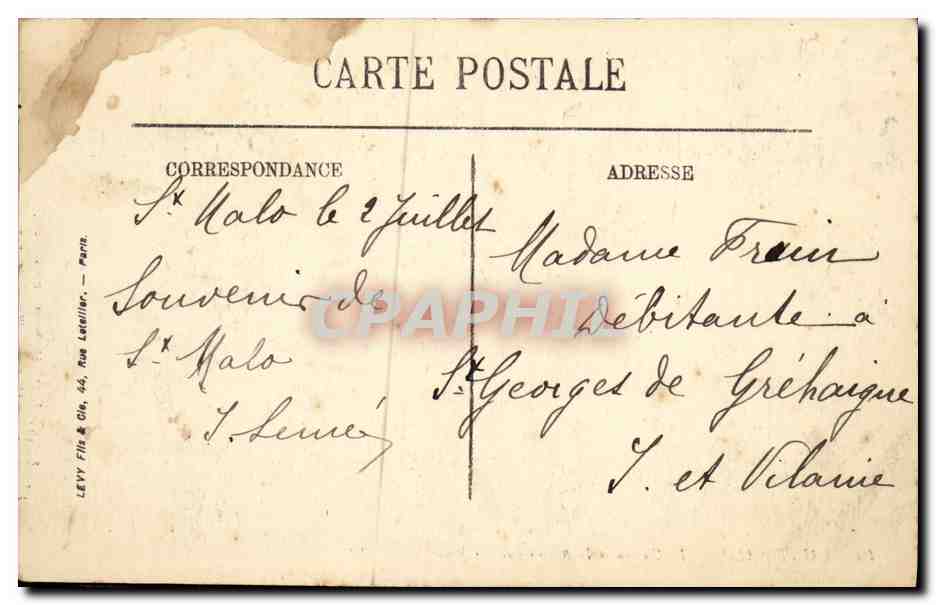 CARTE POSTALE
CORRESPONDANCE
ADRESSE
St Malo le 2 Juillet
Souvenir de
St Malo
Madame Frain
Débitante à
St Georges de Gréhaigne
I. et Vilaine
LEVY Fils & Cie, 44, Rue Letellier. — Paris.
CPAPHIL